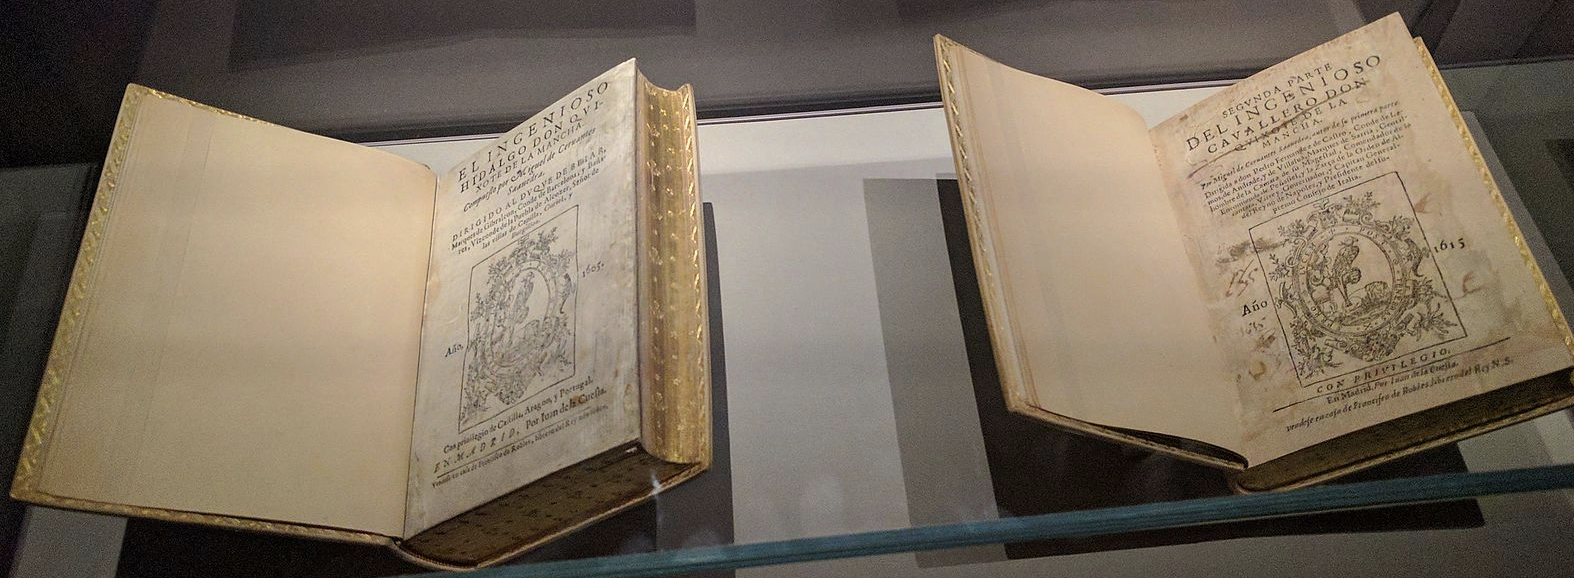 EL INGENIOSO
HIDALGO DON QVI-
XOTE DE LA MANCHA.
Compuesto por Miguel de Cervantes
Saauedra.
DIRIGIDO AL DVQVE DE BEIAR,
Marques de Gibraleon, Conde de Barcelona, y Baña-
res, Vizconde de la Puebla de Alcozer, Señor de
las villas de Capilla, Curiel, y
Burguillos.
Año, 1605.
Con priuilegio de Castilla, Aragon, y Portugal.
EN MADRID, Por Iuan de la Cuesta.
Vendese en casa de Francisco de Robles, librero del Rey nro señor.
SEGVNDA PARTE
DEL INGENIOSO
CAVALLERO DON
QVIXOTE DE LA
MANCHA.
Por Miguel de Cervantes Saauedra, autor de su primera parte.
Dirigida a don Pedro Fernandez de Castro, Conde de Le-
mos, de Andrade, y de Villalua, Marques de Sarria, Gentil-
hombre de la Camara de su Magestad, Comendador de la
Encomienda de Peñafiel, y la Zarça de la Orden de Al-
cantara, Virrey, Gouernador, y Capitan General
del Reyno de Napoles, y Presidente del su-
premo Consejo de Italia.
Año 1615
CON PRIVILEGIO,
En Madrid, Por Iuan de la Cuesta.
vendese en casa de Francisco de Robles, librero del Rey N.S.